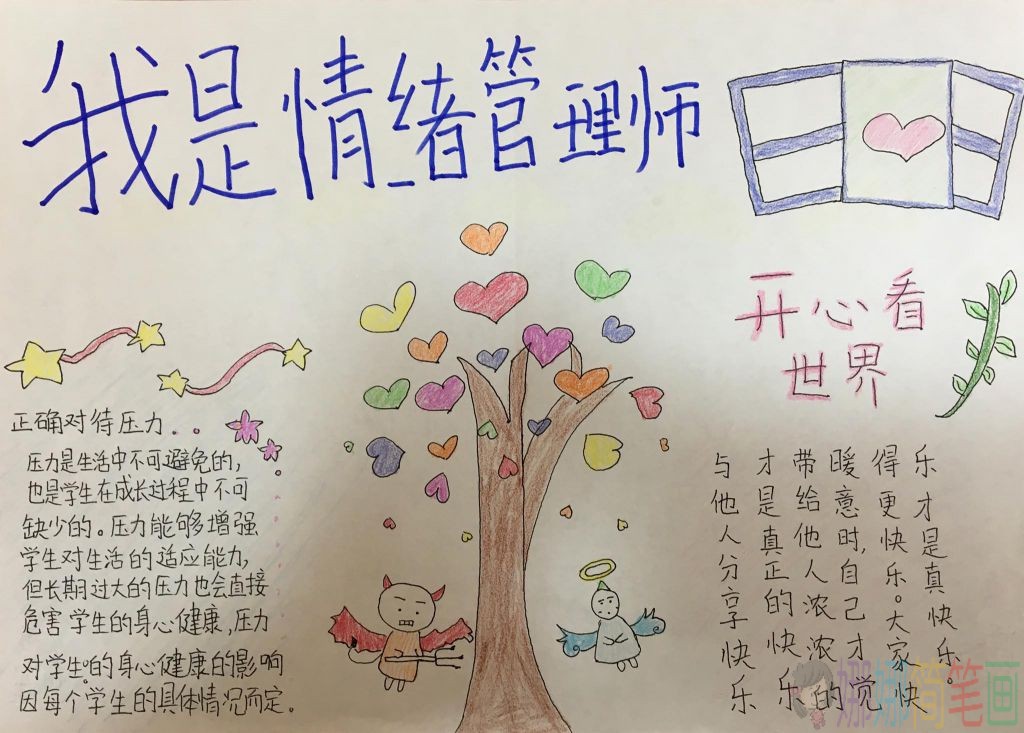 我是情绪管理师
开心看
世界
正确对待压力...
压力是生活中不可避免的,
也是学生在成长过程中不可
缺少的。压力能够增强
学生对生活的适应能力,
但长期过大的压力也会直接
危害学生的身心健康,压力
对学生的身心健康的影响
因每个学生的具体情况而定。
与他人分享快乐
才是真正的快乐
带给他人浓浓的
暖意时,自己才觉
得更快乐。大家快
乐才是真快乐。
娜娜简笔画